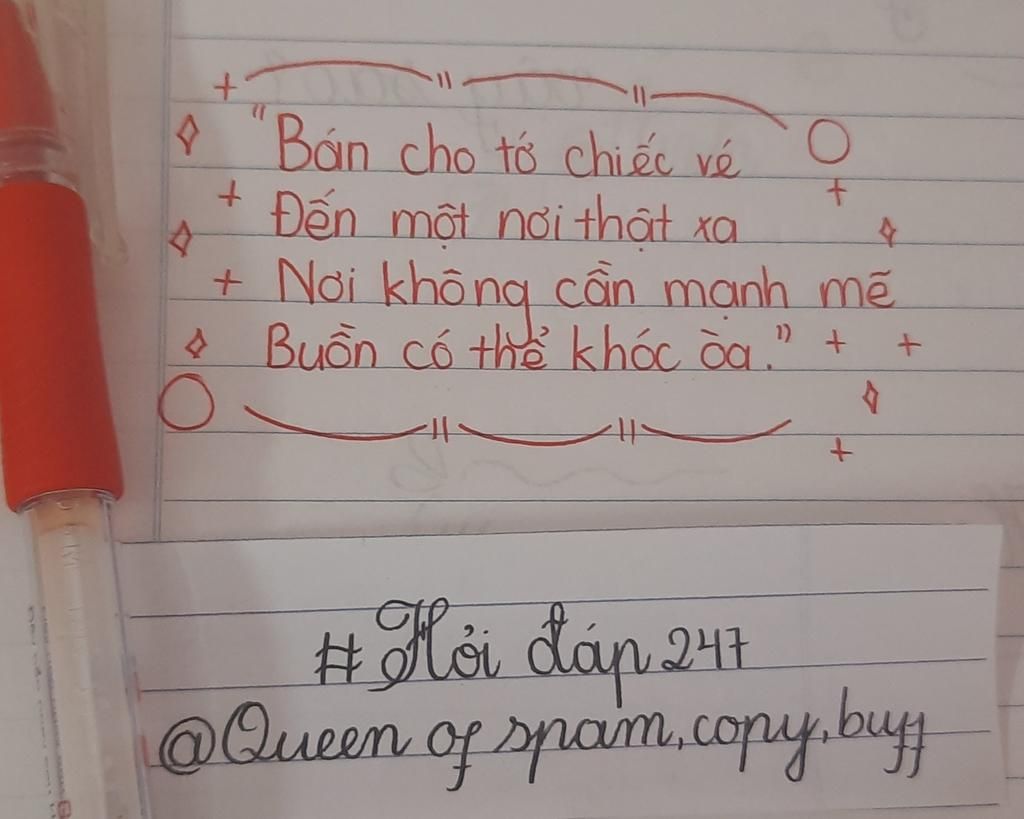 "Bán cho tớ chiếc vé
Đến một nơi thật xa
Nơi không cần mạnh mẽ
Buồn có thể khóc òa."
#Hỏi đáp 247
@Queen of spam, copy, buff